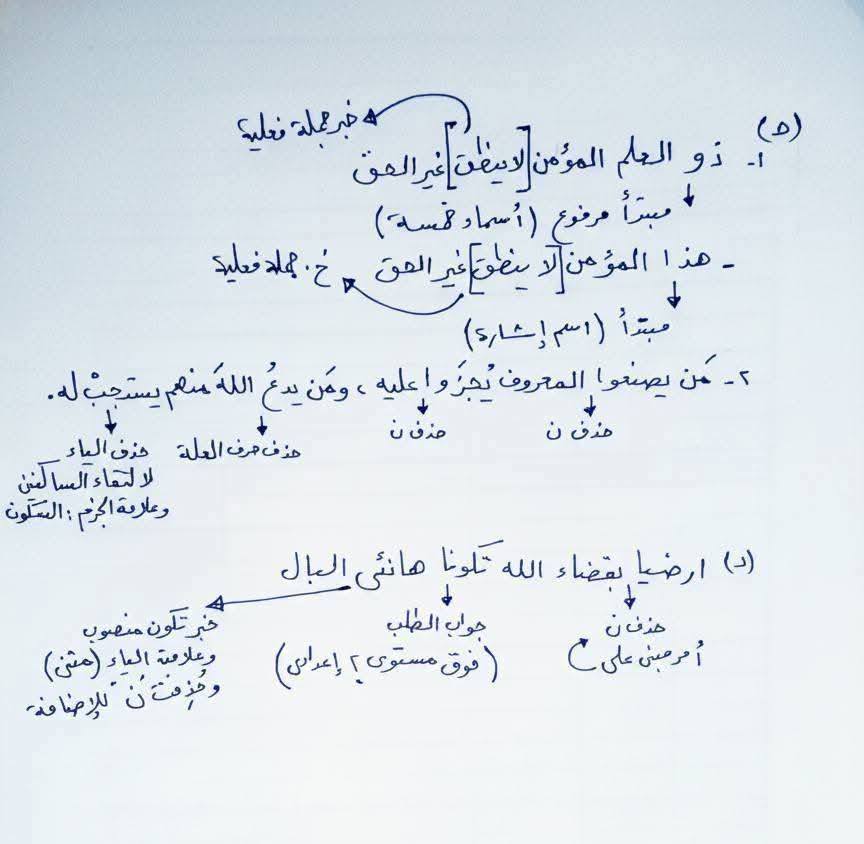 (ج)
خبر جملة فعلية
١- ذو العلم المؤمن [لا ينطق] غير الحق
مبتدأ مرفوع (أسماء خمسة)
- هذا المؤمن [لا ينطق] غير الحق خ. جملة فعلية
مبتدأ (اسم إشارة)
٢- مَن يصنعوا المعروف يُجزَوا عليه، ومَن يدعُ اللهَ منهم يستجبْ له.
حذف ن حذف ن حذف حرف العلة حذف الياء
لالتقاء الساكنين
وعلامة الجزم: السكون
(د) ارضيا بقضاء الله تكونا هانئى البال
حذف ن جواب الطلب خبر تكون منصوب
أمر مبنى على (فوق مستوى ٢ إعدادى) وعلامة الياء (مثنى)
وحُذِفت "ن" للإضافة